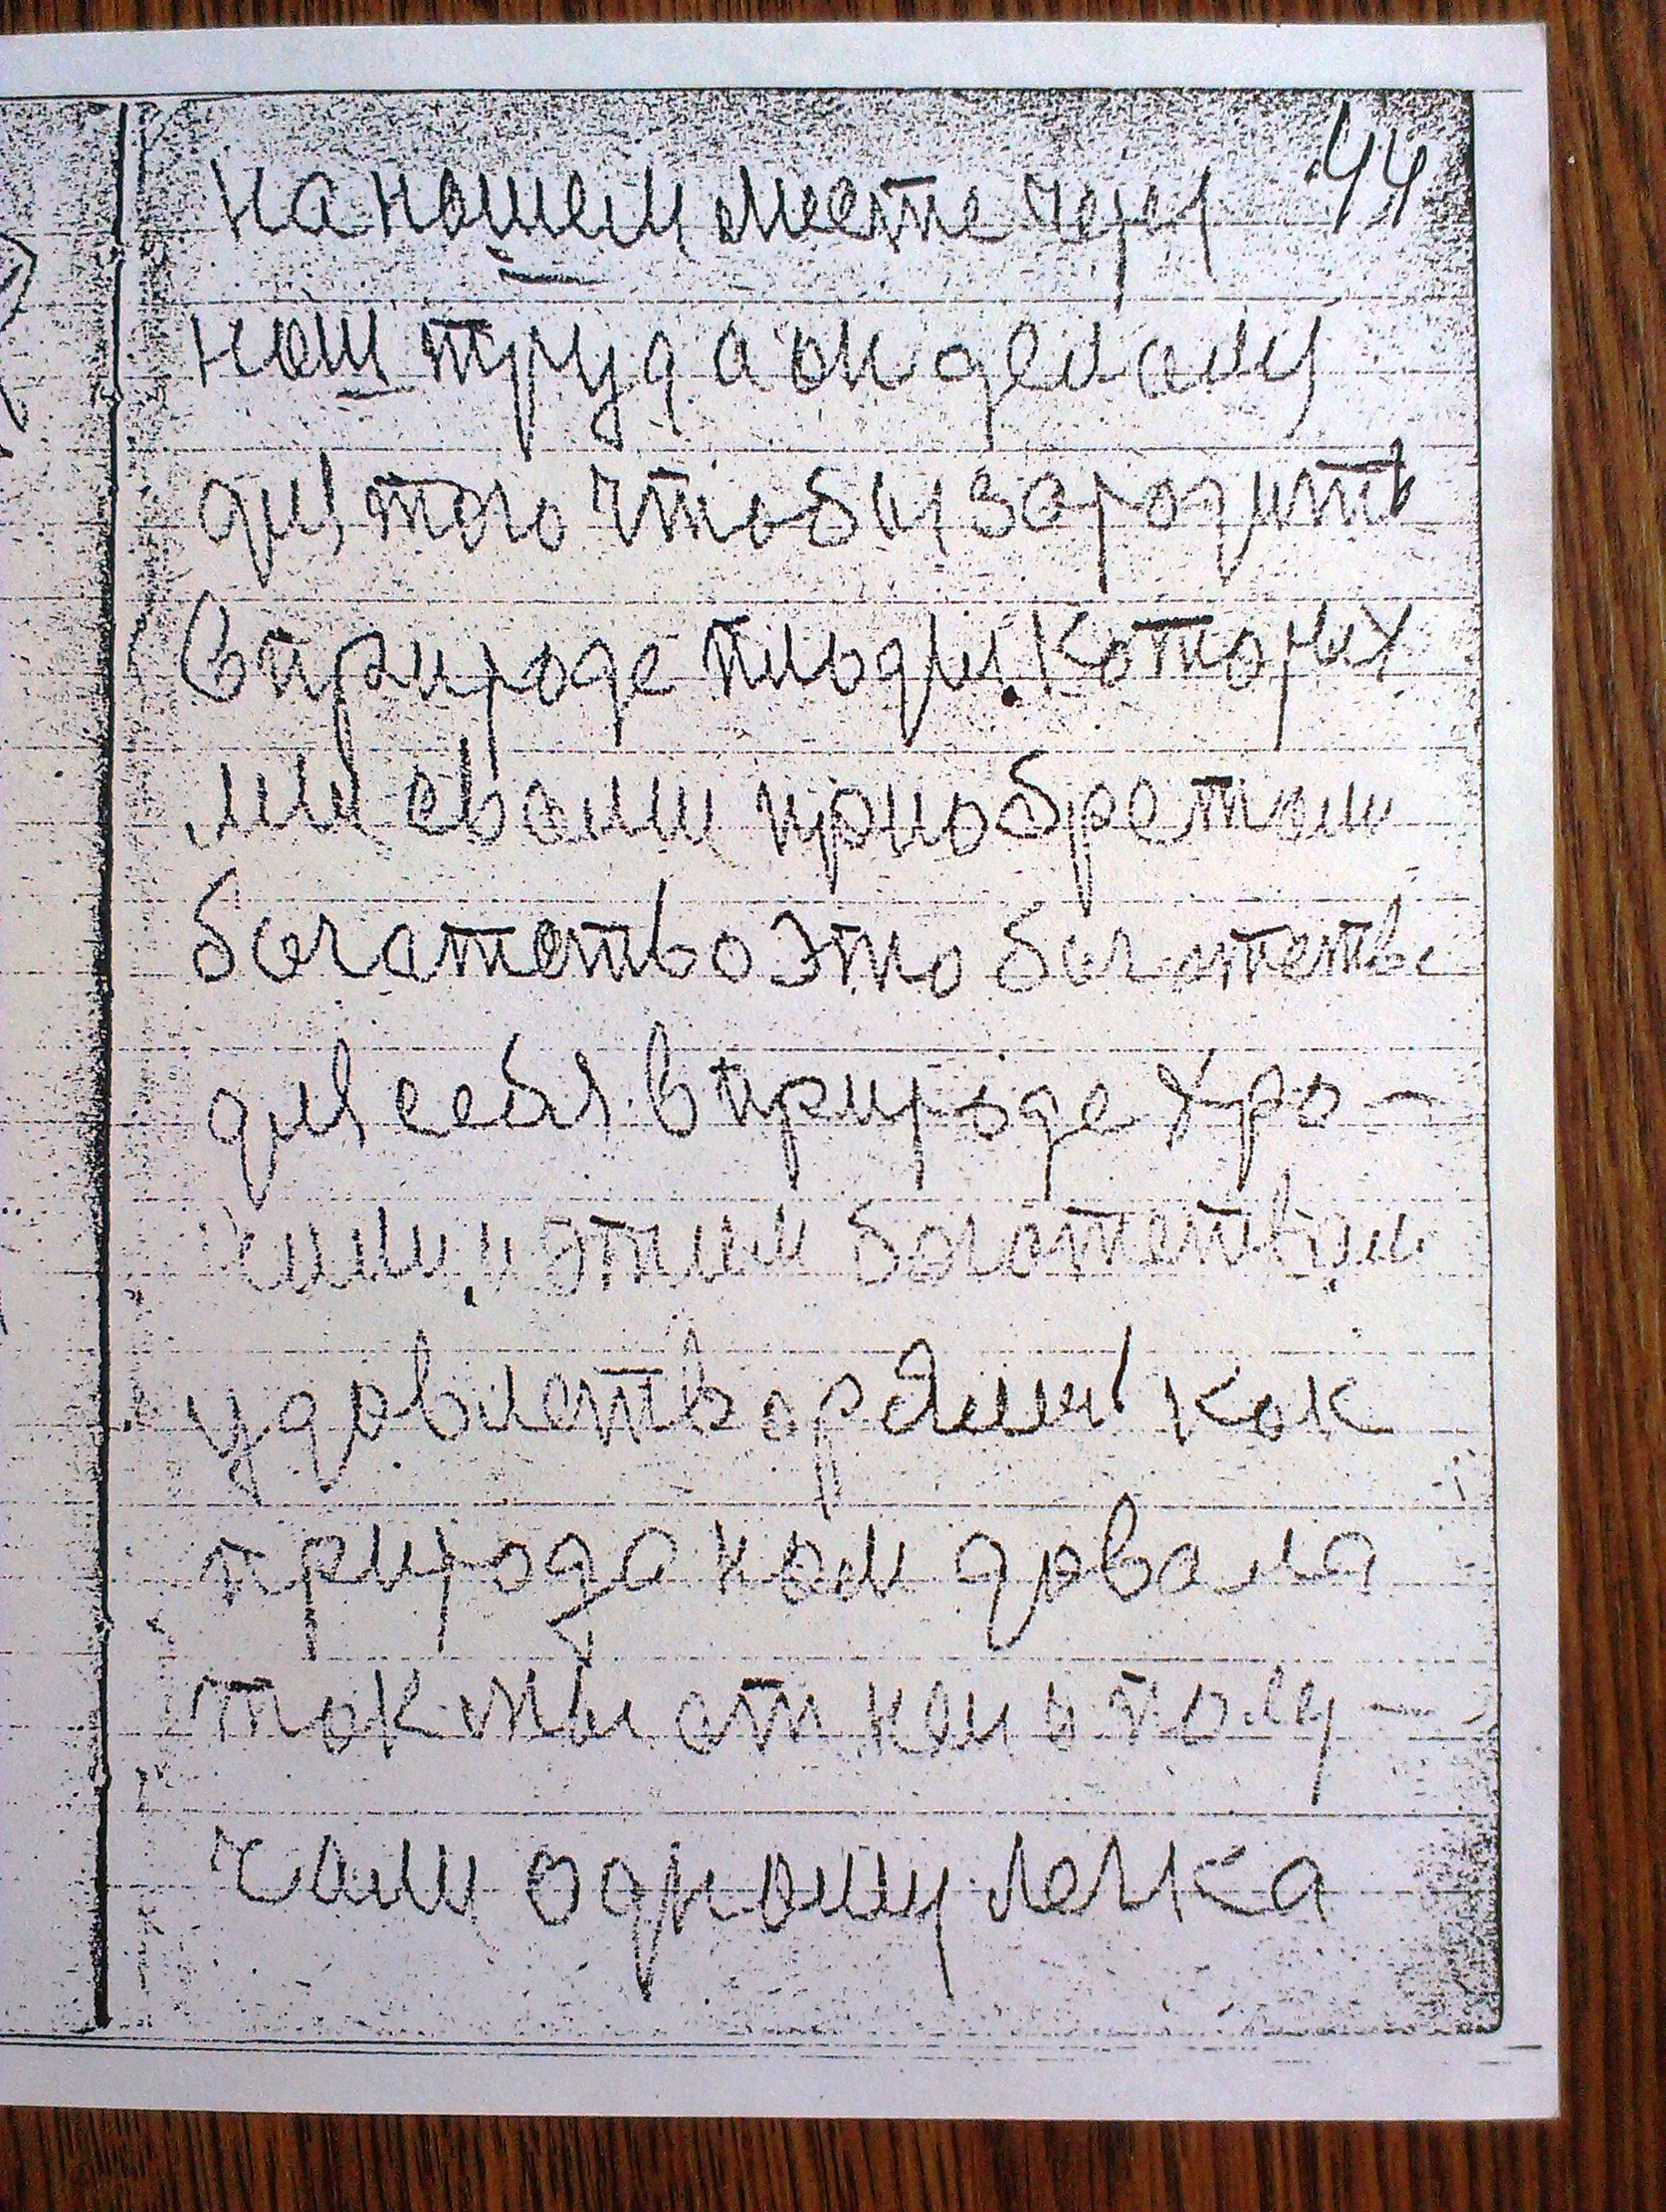 44
на нашем месте через
наш труд а он деламу
для того чтобы зародить
в природе плоды. Которых
мы своим приобретом
богатство это богатство
для себя в природе хро-
ним, и этим богатством
удовлетворяем как
природа нам довала
так мы от нею полу-
чаем одному легка